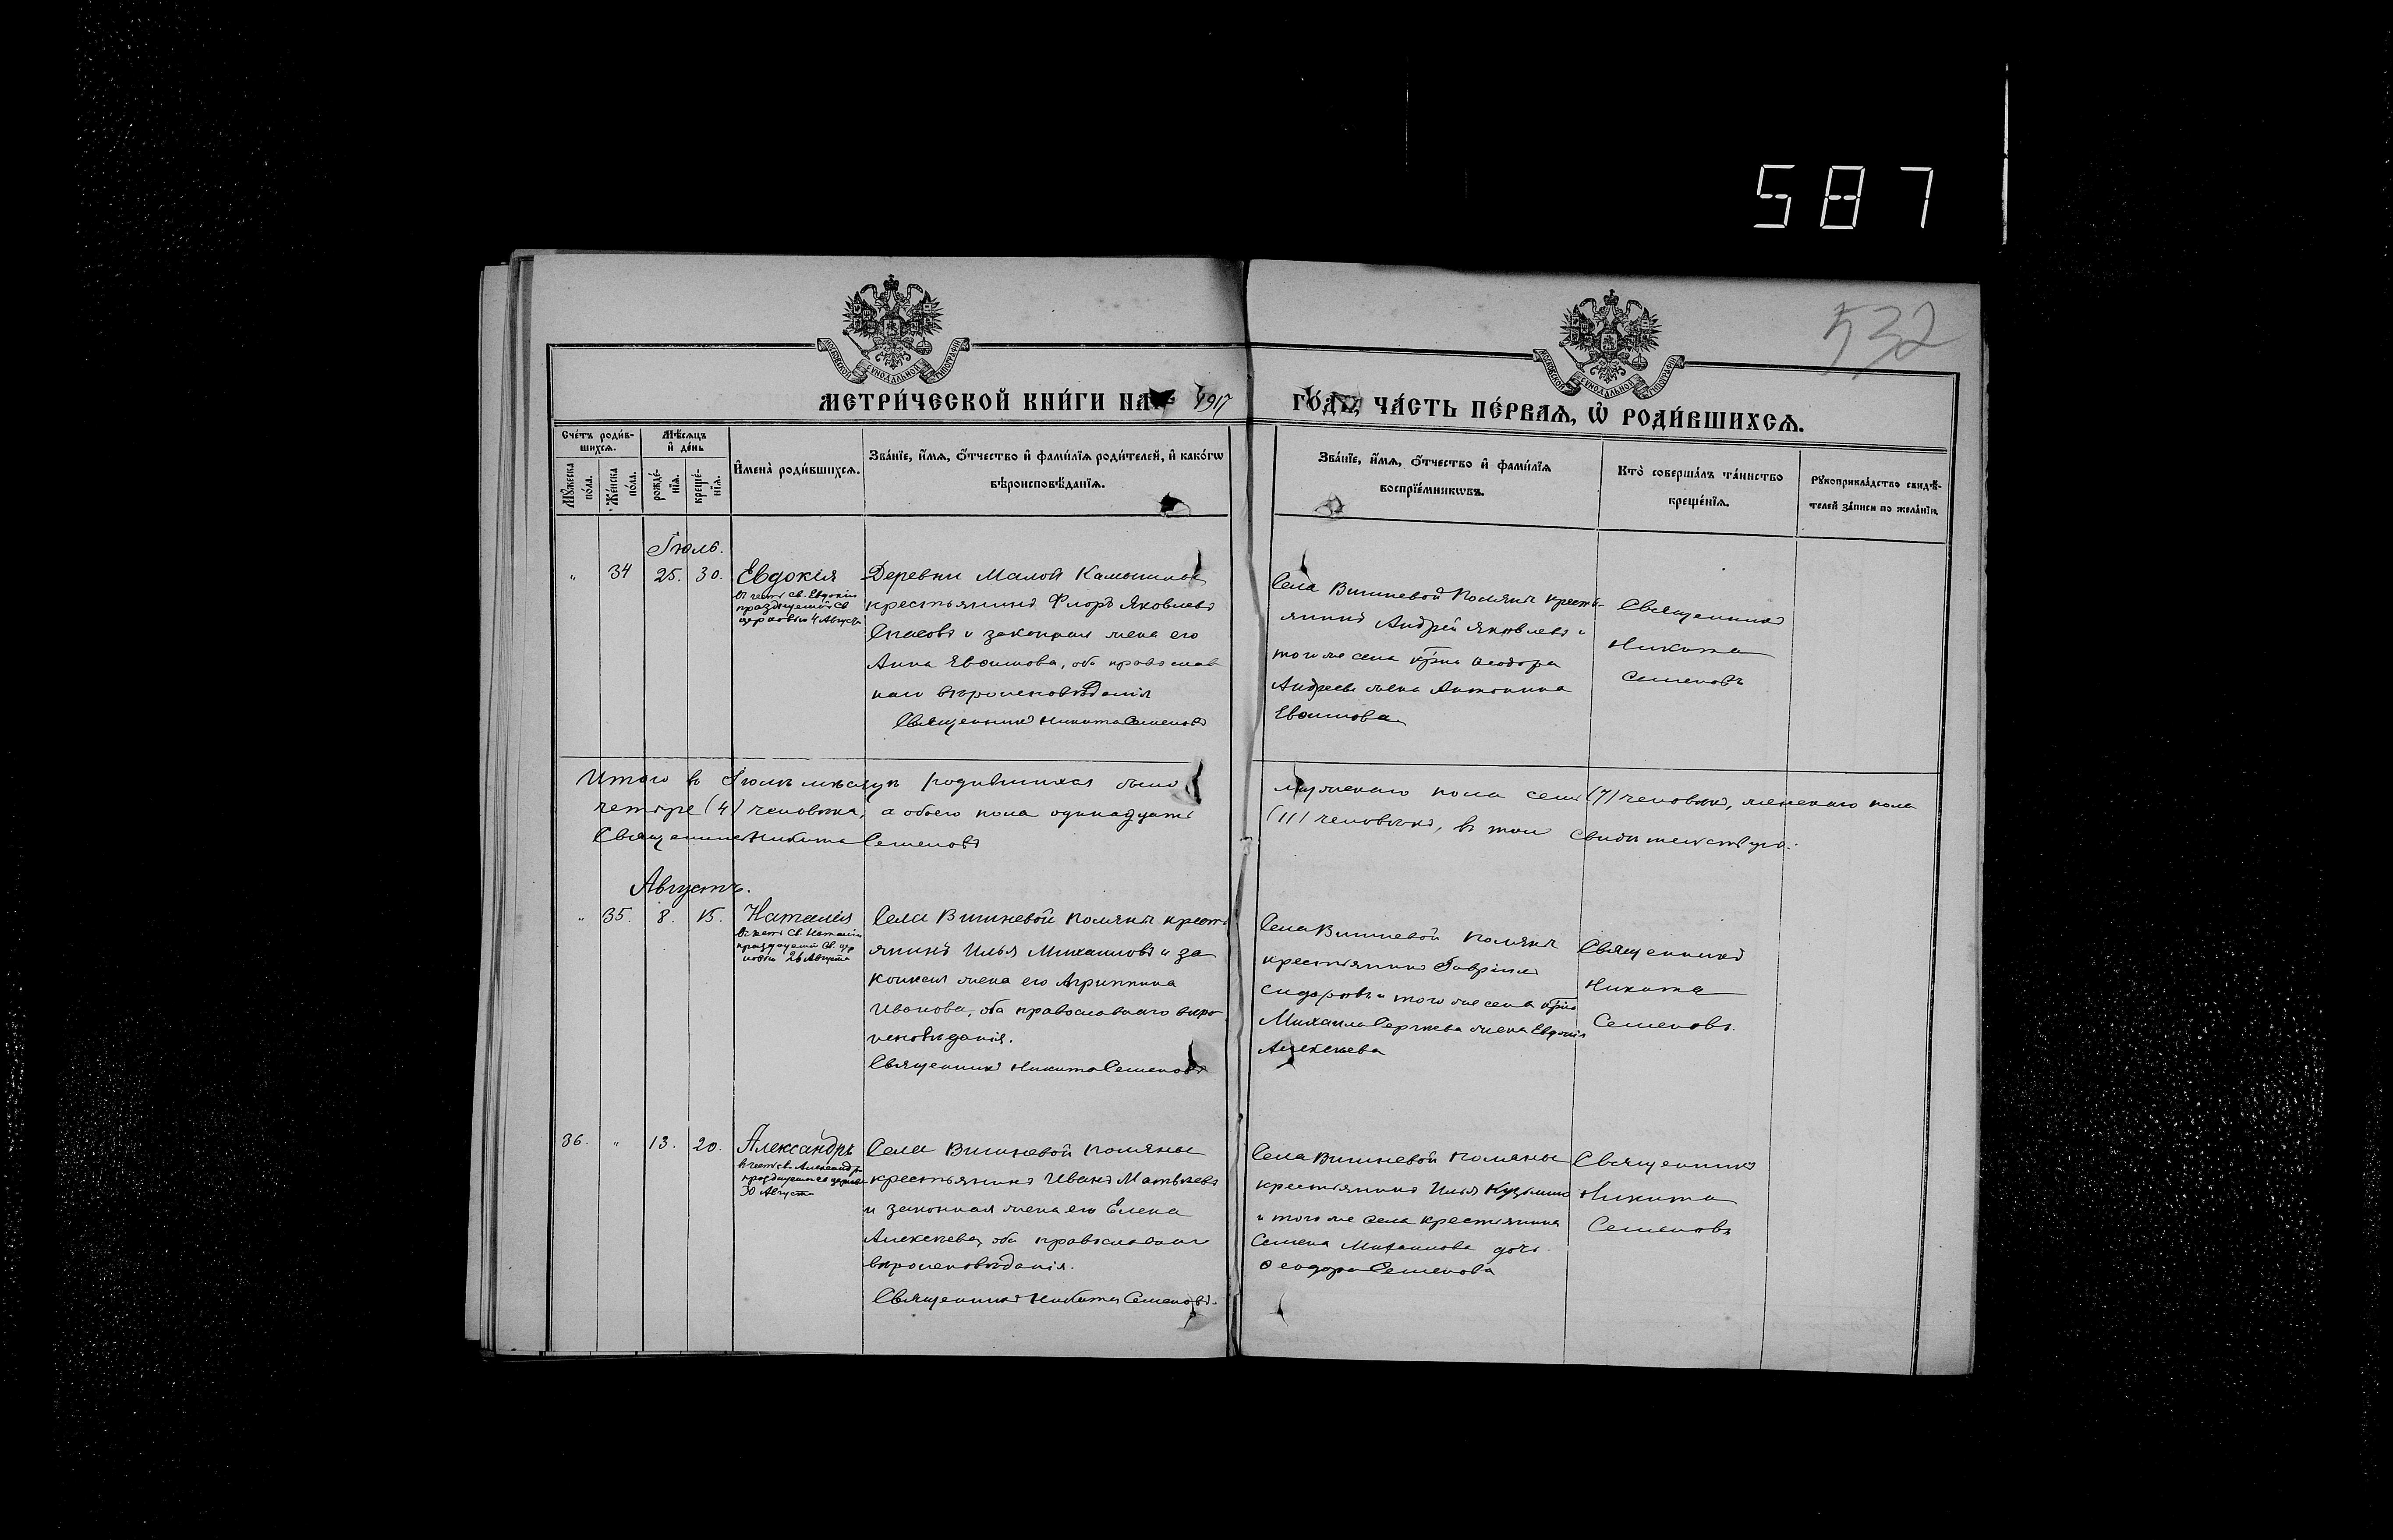 587
532
МОСКОВСКОЙ СѴНОДАЛЬНОЙ ТИПОГРАФІИ
МОСКОВСКОЙ СѴНОДАЛЬНОЙ ТИПОГРАФІИ
МЕТРИ́ЧЕСКОЙ КНИ́ГИ НА 1917 ГО́ДЪ, ЧА́СТЬ ПЕ́РВАѦ, Ѽ РОДИ́ВШИХСѦ.
Сче́тъ роди́в-
шихсѧ.
Мѣ́сѧцъ
и҆ де́нь
Мꙋ́жеска
по́ла.
Же́нска
по́ла.
рожде́-
нїѧ.
креще́-
нїѧ.
И҆мена̀ роди́вшихсѧ.
Зва́нїе, и҆́мѧ, ѻ҆́тчество и҆ фами́лїѧ роди́телей, и҆ како́гѡ
вѣроисповѣ́данїѧ.
Зва́нїе, и҆́мѧ, ѻ҆́тчество и҆ фами́лїѧ
воспрїе́мникѡвъ.
Кто̀ соверша́лъ та́инство
креще́нїѧ.
Рꙋкоприкла́дство свидѣ́-
телей за́писи по жела́нїю.
Іюль.
„ 34 25. 30. Евдокія
въ честь св. Евдокіи
празднуемой Св.
церковью 4 Августа
Деревни Малой
крестьянинъ Флоръ Яковлевъ
Спасовъ и законная жена его
Анна Евѳимова, оба православ
наго вѣроисповѣданія
Священникъ Никита Семеновъ
Села Вишневой Поляны кресть-
янинъ Андрей Яковлевъ и
того же села кр-на Ѳеодора
Андреева жена Антонина
Евѳимова
Священникъ
Никита
Семеновъ
Итого въ Іюлѣ мѣсяцѣ родившихся было мужескаго пола семь (7) человѣкъ, женскаго пола
четыре (4) человѣка, а обоего пола одинадцать (11) человѣкъ, въ томъ свидѣтельствую:
Священникъ Никита Семеновъ
Августъ.
„ 35. 8. 15. Наталія
въ честь Св. Наталіи
празднуемой Св. цер
ковью 26 Августа
Села Вишневой Поляны кресть
янинъ Илья Михаиловъ и за
конная жена его Агриппина
Иванова, оба православнаго вѣро-
исповѣданія.
Священникъ Никита Семеновъ
Села Вишневой Поляны
крестьянинъ Гавріилъ
Сидоровъ и того же села кр-на
Михаила Сергѣева жена Евдокія
Алексѣева
Священникъ
Никита
Семеновъ.
36. „ 13. 20. Александръ
въ честь св. Александра
празднуемаго церковью
30 Августа
Села Вишневой Поляны
крестьянинъ Иванъ Матвѣевъ
и законная жена его Елена
Алексѣева, оба православнаго
вѣроисповѣданія.
Священникъ Никита Семеновъ.
Села Вишневой Поляны
крестьянинъ Илья Кузьминъ
и того же села крестьянина
Семена Михаилова дочь
Ѳеодора Семенова
Священникъ
Никита
Семеновъ